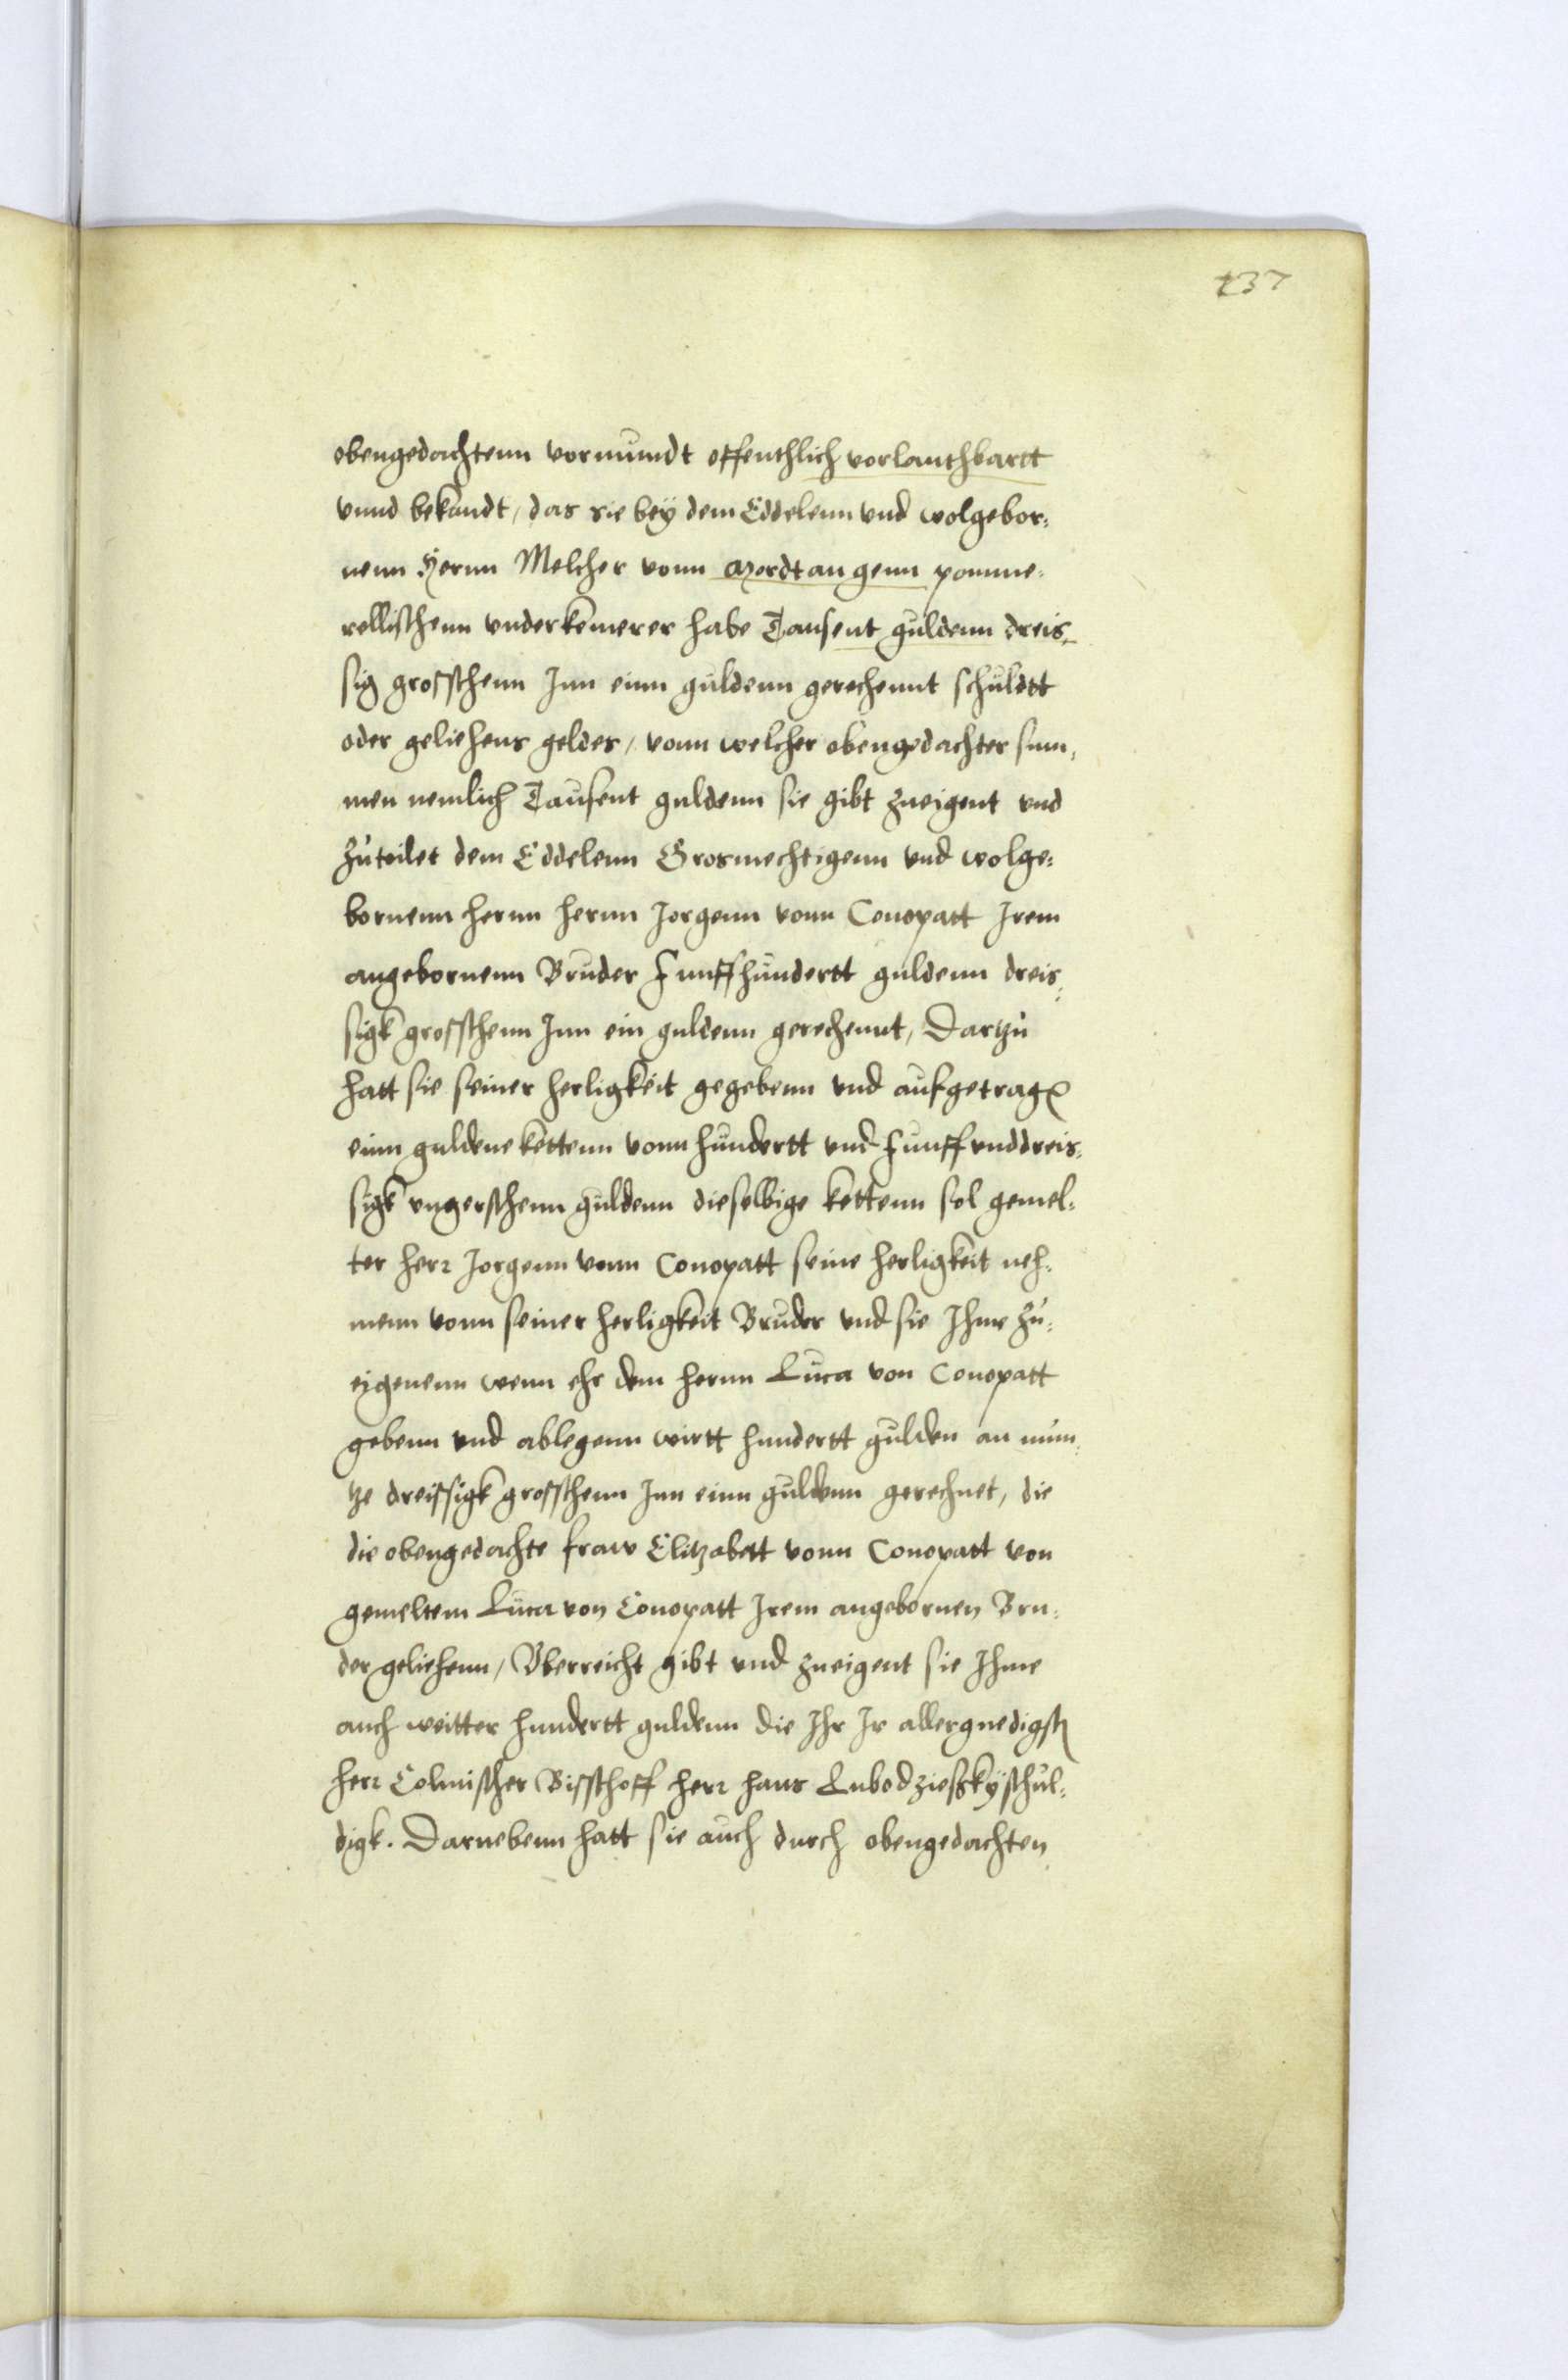 137
obengedachtenn vormundt offenthlich vorlauthbartt
vnnd bekandt, das sie bey dem Eddelenn vnd wolgebor¬
nenn Hernn Melcher vonn Mordtangenn pomme¬
rellischenn vnderkemerer habe Tausent guldenn dreis¬
sig grosschenn Inn einn guldenn gerechennt schuldtt
oder geliehens geldes, vonn welcher obengedachter sum¬
men nemlich Tausent guldenn sie gibt zueigent vnd
zuteilet dem Eddelenn Grosmechtigenn vnd wolge¬
bornenn hernn hernn Jorgenn vonn Conopatt Irem
angebornenn Bruder Funffhundertt guldenn dreis¬
sigk grosschenn Inn ein guldenn gerechennt, Dartzu
hatt sie seiner herligkeit gegebenn vnd aufgetragen
einn guldene kettenn vonn hundertt vnd Funffvnddreis¬
sigk vngerschenn guldenn dieselbige kettenn sol gemel¬
ter herr Jorgenn vonn Conopatt seine herligkeit neh¬
menn vonn seiner herligkeit Bruder vnd sie Ihme zu¬
eigenenn wenn ehr dem hernn Luca von Conopatt
gebenn vnd ablegenn wirtt hundertt gulden an mun¬
tze dreissigk grosschenn Inn einn guldenn gerechnet, die
die obengedachte fraw Elitzabett vonn Conopatt von
gemeltem Luca von Conopatt Irem angebornen Bru¬
der geliehenn, Vberreicht gibt vnd zueigent sie Ihme
auch weitter hundertt guldenn die Ihr Ir allergnedigster
herr Colmischer Bisschoff herr hans Lubodzießky schul¬
digk. Darnebenn hatt sie auch durch obengedachten